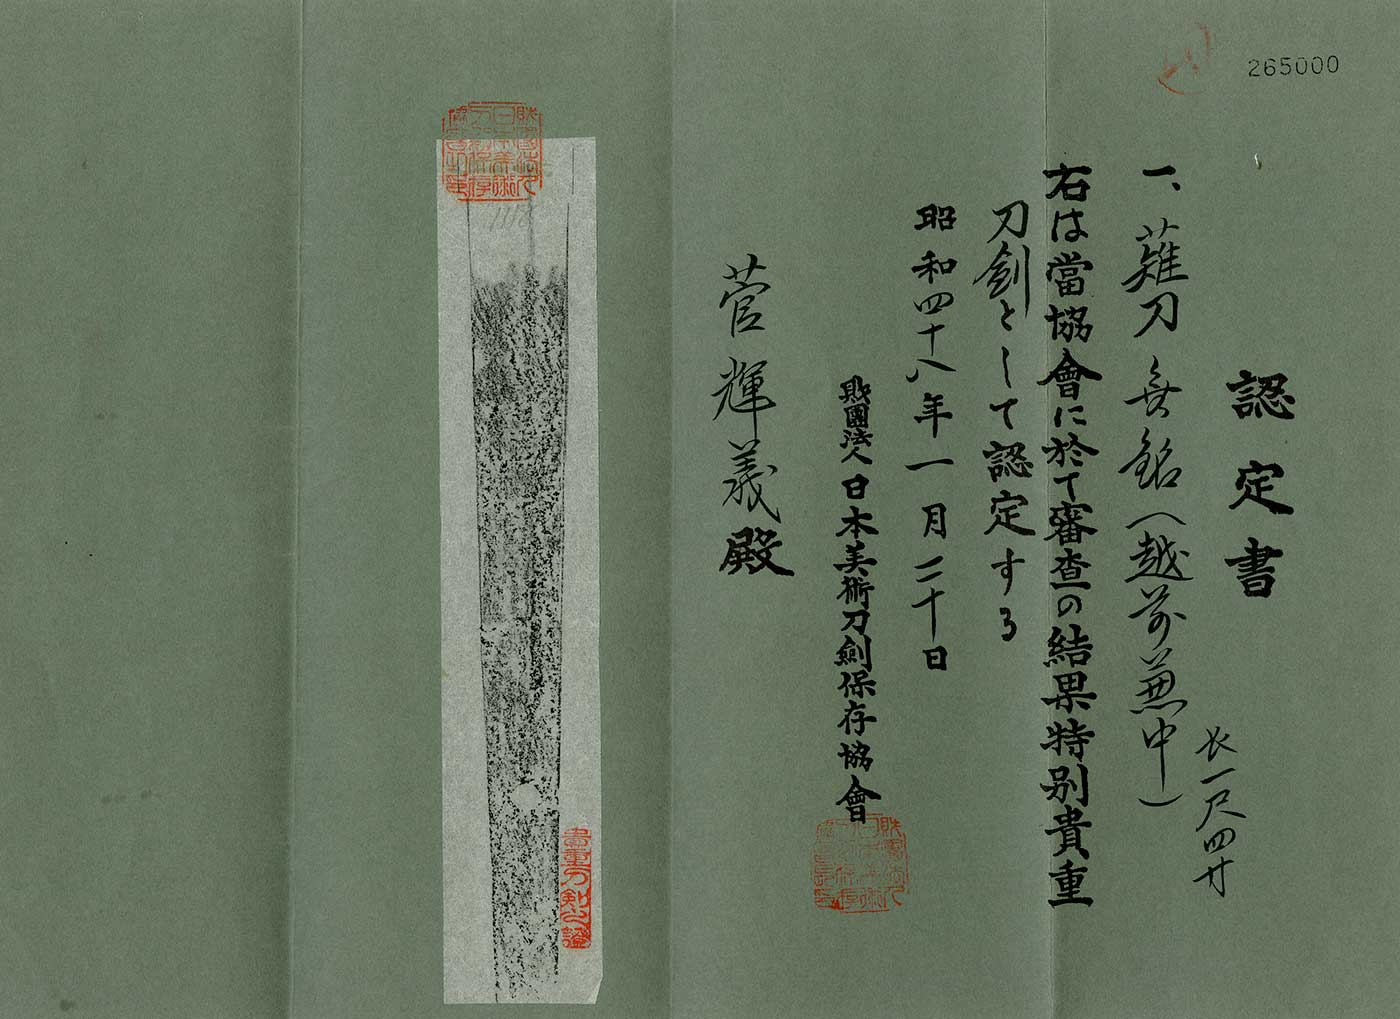 265000
認定書
一、薙刀 無銘(越前兼中)
長一尺四寸
右は當協會に於て審査の結果特別貴重
刀劍として認定する
昭和四十八年一月二十日
財團法人日本美術刀劍保存協會
菅輝義殿
貴重刀剣之證